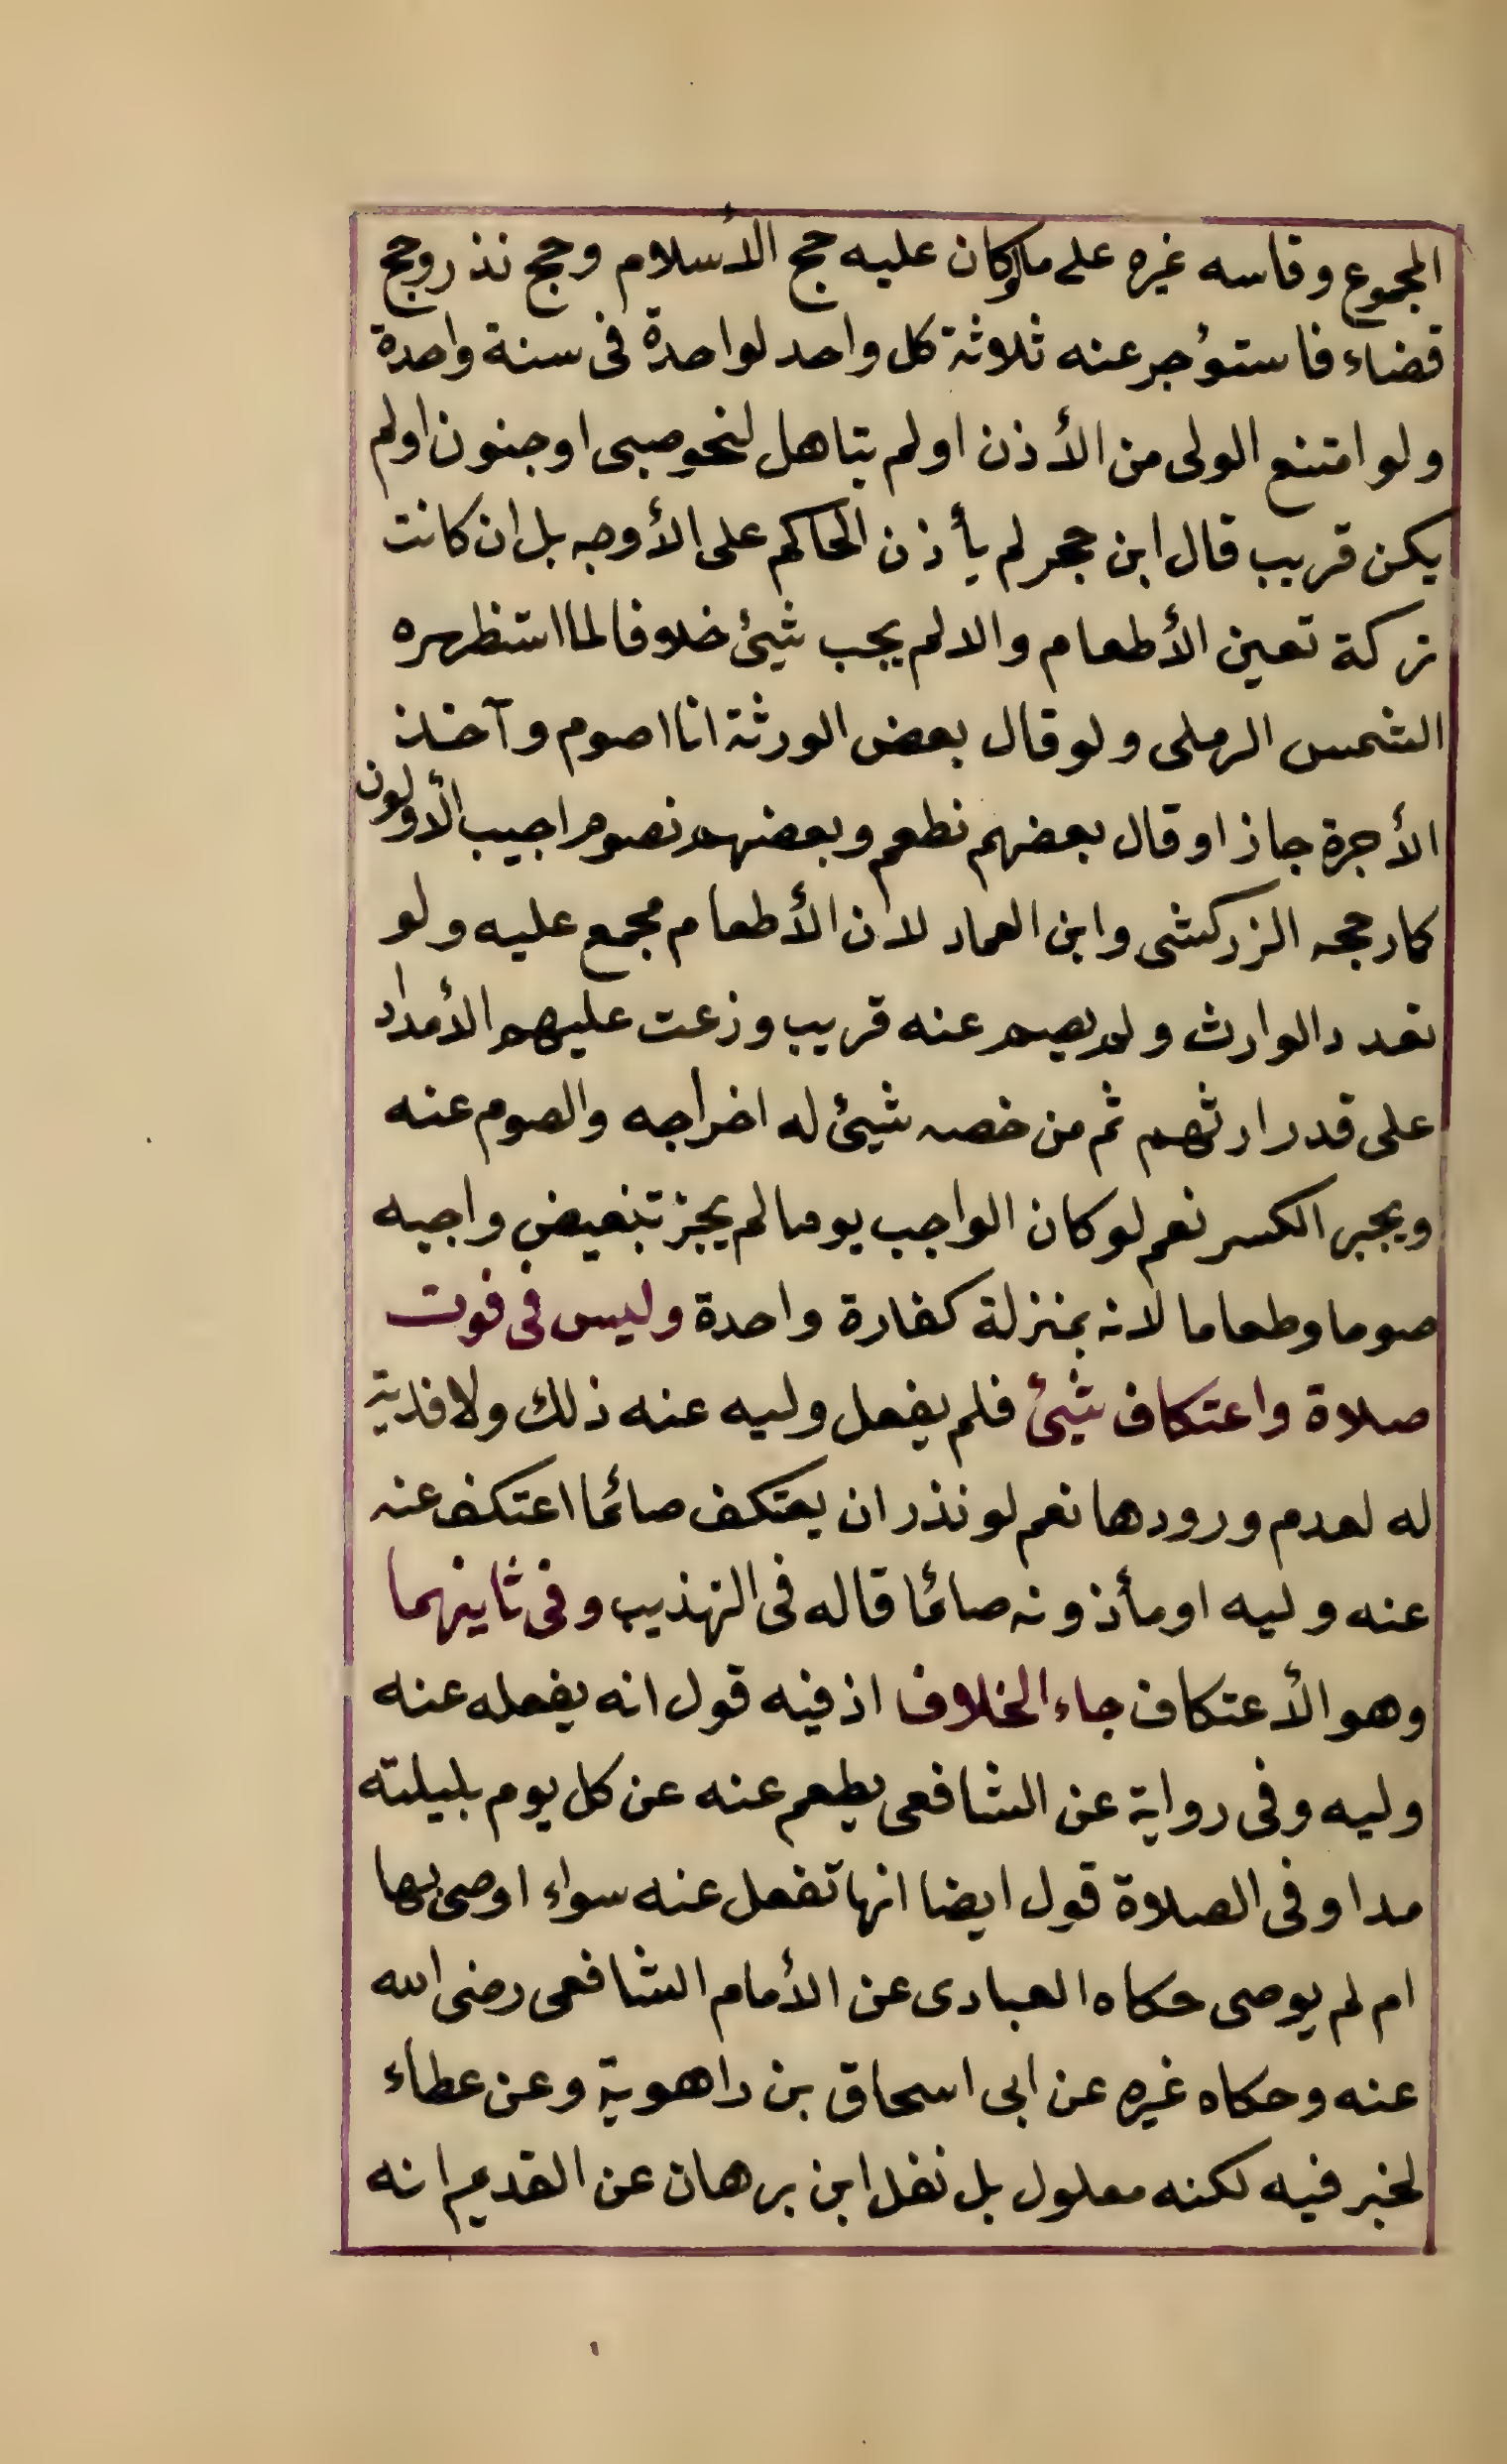 المجموع وقاسه غيره على مالوكان عليه حج الأسلام وحج نذر وحج
قضاء فاستؤجر عنه ثلاثة كل واحد لواحدة فى سنة واحدة
ولو امتنع الولى من الأذن اولم يتاهل لنحو صبى اوجنون اولم
يكن قريب قال ابن حجر لم يأذن الحاكم على الأوجه بل ان كانت
تركة تعين الأطعام والا لم يجب شيئ خلافا لما استظهره
الشمس الرملى ولو قال بعض الورثة انا اصوم وآخذ
الأجرة جاز او قال بعضهم نطعم وبعضهم نصوم اجيب الأولون
كما رجحه الزركشى وابن العماد لان الأطعام مجمع عليه ولو
تعدد الوارث ولم يصم عنه قريب وزعت عليهم الأمداد
على قدر ارثهم ثم من خصه شيئ له اخراجه والصوم عنه
ويجبر الكسر نعم لو كان الواجب يوما لم يجز تبعيض واجبه
صوما وطعاما لانه بمنزلة كفارة واحدة وليس فى فوت
صلاة واعتكاف شيئ فلم يفعل وليه عنه ذلك ولا فدية
له لعدم ورودها نعم لو نذر ان يعتكف صائما اعتكف عنه
عنه وليه او مأذونه صائما قاله فى التهذيب وفى ثانيهما
وهو الأعتكاف جاء الخلاف اذ فيه قول انه يفعله عنه
وليه وفى رواية عن الشافعى يطعم عنه عن كل يوم بليلته
مدا وفى الصلاة قول ايضا انها تفعل عنه سواء اوصى بها
ام لم يوصى حكاه العبادى عن الأمام الشافعى رضى الله
عنه وحكاه غيره عن ابى اسحاق بن راهوية وعن عطاء
لخبر فيه لكنه معلول بل نقل ابن برهان عن القديم انه